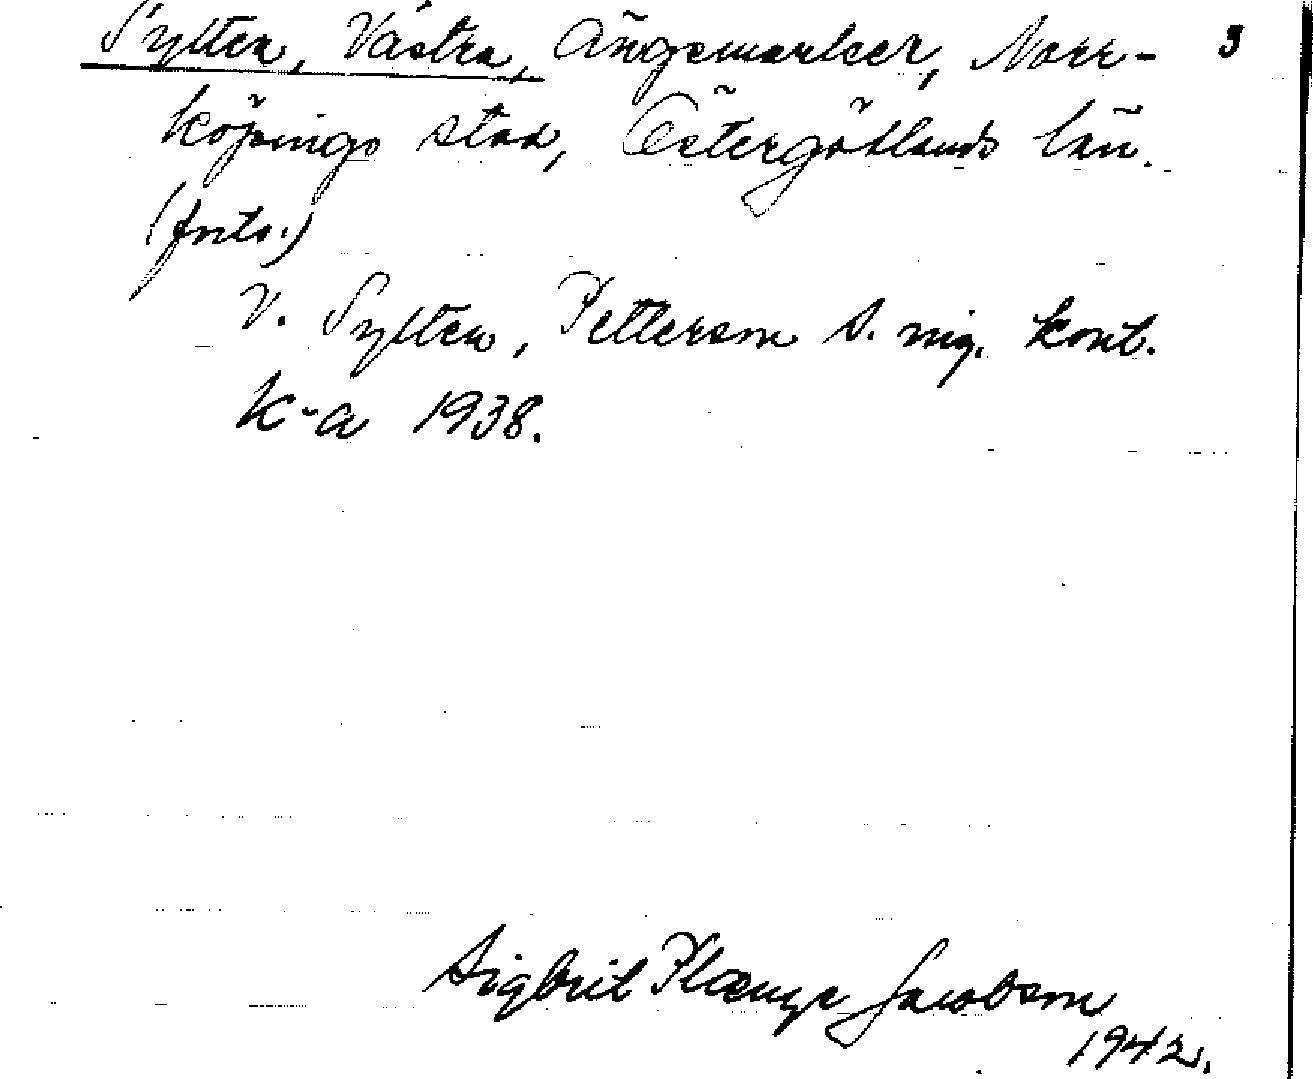 Sylten, Västra, Ängsmarker, Norr- 3
köpings stad, Östergötlands län.
(fntr.)
V. Sylten, Petterson s. mig. kont.
k-a 1938.
Sigbrit Plænge Jacobson
1942.